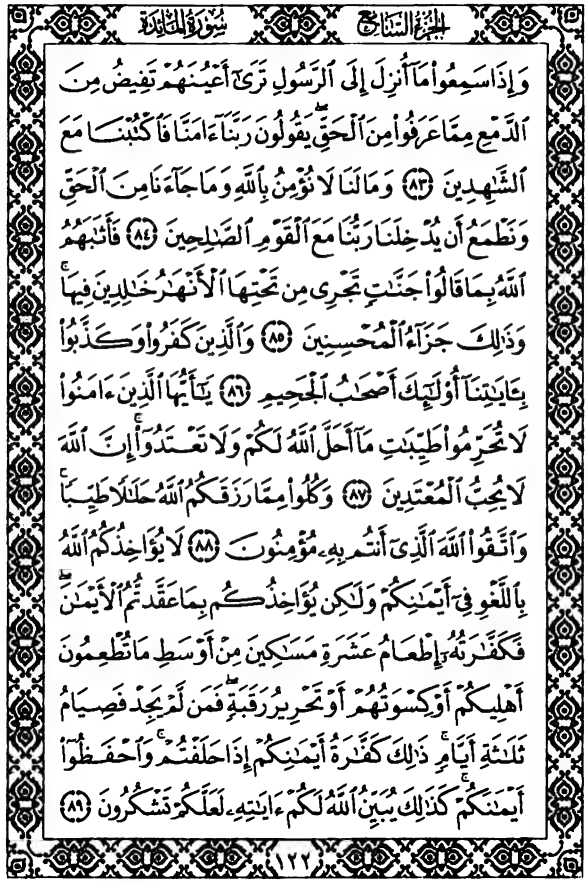 الجزء السابع سورة المائدة
وَإِذَا سَمِعُوا۟ مَآ أُنزِلَ إِلَى ٱلرَّسُولِ تَرَىٰٓ أَعْيُنَهُمْ تَفِيضُ مِنَ
ٱلدَّمْعِ مِمَّا عَرَفُوا۟ مِنَ ٱلْحَقِّۖ يَقُولُونَ رَبَّنَآ ءَامَنَّا فَٱكْتُبْنَا مَعَ
ٱلشَّـٰهِدِينَ ٨٣ وَمَا لَنَا لَا نُؤْمِنُ بِٱللَّهِ وَمَا جَآءَنَا مِنَ ٱلْحَقِّ
وَنَطْمَعُ أَن يُدْخِلَنَا رَبُّنَا مَعَ ٱلْقَوْمِ ٱلصَّـٰلِحِينَ ٨٤ فَأَثَـٰبَهُمُ
ٱللَّهُ بِمَا قَالُوا۟ جَنَّـٰتٍ تَجْرِى مِن تَحْتِهَا ٱلْأَنْهَـٰرُ خَـٰلِدِينَ فِيهَاۚ
وَذَٰلِكَ جَزَآءُ ٱلْمُحْسِنِينَ ٨٥ وَٱلَّذِينَ كَفَرُوا۟ وَكَذَّبُوا۟
بِـَٔايَـٰتِنَآ أُو۟لَـٰٓئِكَ أَصْحَـٰبُ ٱلْجَحِيمِ ٨٦ يَـٰٓأَيُّهَا ٱلَّذِينَ ءَامَنُوا۟
لَا تُحَرِّمُوا۟ طَيِّبَـٰتِ مَآ أَحَلَّ ٱللَّهُ لَكُمْ وَلَا تَعْتَدُوٓا۟ۚ إِنَّ ٱللَّهَ
لَا يُحِبُّ ٱلْمُعْتَدِينَ ٨٧ وَكُلُوا۟ مِمَّا رَزَقَكُمُ ٱللَّهُ حَلَـٰلًا طَيِّبًاۚ
وَٱتَّقُوا۟ ٱللَّهَ ٱلَّذِىٓ أَنتُم بِهِۦ مُؤْمِنُونَ ٨٨ لَا يُؤَاخِذُكُمُ ٱللَّهُ
بِٱللَّغْوِ فِىٓ أَيْمَـٰنِكُمْ وَلَـٰكِن يُؤَاخِذُكُم بِمَا عَقَّدتُّمُ ٱلْأَيْمَـٰنَۖ
فَكَفَّـٰرَتُهُۥٓ إِطْعَامُ عَشَرَةِ مَسَـٰكِينَ مِنْ أَوْسَطِ مَا تُطْعِمُونَ
أَهْلِيكُمْ أَوْ كِسْوَتُهُمْ أَوْ تَحْرِيرُ رَقَبَةٍۖ فَمَن لَّمْ يَجِدْ فَصِيَامُ
ثَلَـٰثَةِ أَيَّامٍۚ ذَٰلِكَ كَفَّـٰرَةُ أَيْمَـٰنِكُمْ إِذَا حَلَفْتُمْۚ وَٱحْفَظُوٓا۟
أَيْمَـٰنَكُمْۚ كَذَٰلِكَ يُبَيِّنُ ٱللَّهُ لَكُمْ ءَايَـٰتِهِۦ لَعَلَّكُمْ تَشْكُرُونَ ٨٩
١٢٢